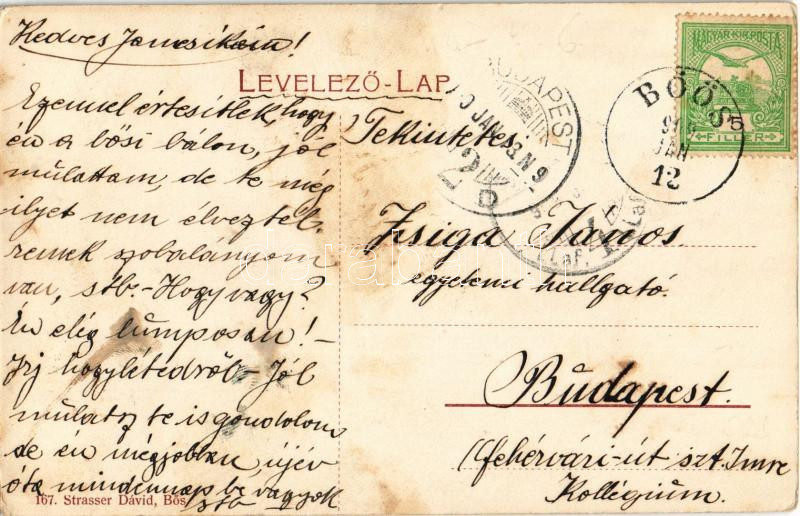 Kedves Jancsikám!
LEVELEZŐ-LAP
Ezennel értesitlek, hogy
én a bősi bálon, jól
mulattam, de te még
ilyet nem élveztél.
remek szobalányom
van, stb.- Hogy vagy?
Én elég lumposan! -
Irj hogylétedről - Jól
mulatsz te is gondolom
de én mégjobban, újév
óta mindennap be vagyok
167. Strasser Dávid, Bős
MAGYAR KIR. POSTA
5
FILLÉR
BŐŐS
JAN
12
BUDAPEST
JAN
2
D
Tekintetes
Zsiga János
egyetemi hallgató.
Budapest.
(fehérvári-út szt. Imre
Kollégium.